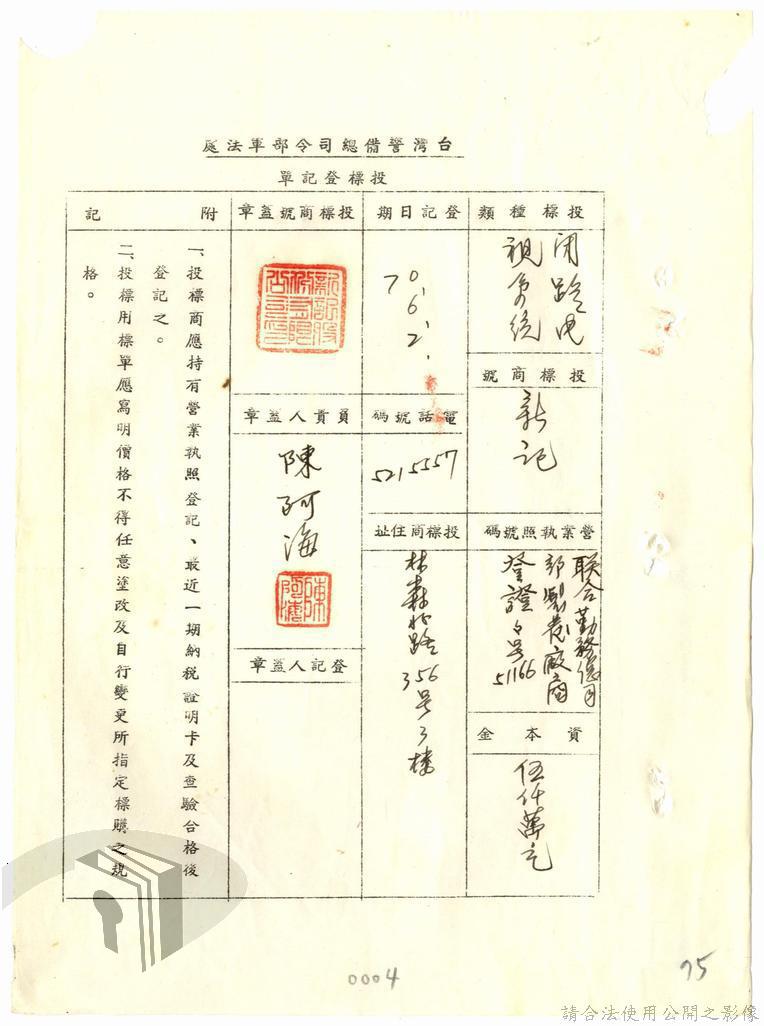 台灣警備總司令部軍法處
投標登記單
投標種類
閉路电
視系統
投標商號
新記
營業執照號碼
联合勤務總司
部製卷廠商
登證字号
51166
資本金
伍仟萬元
登記日期
70.6.2.
電話號碼
5215557
投標商住址
林森北路356号3樓
投標商號蓋章
負責人蓋章
陳阿海
陳阿海
登記人蓋章
附記
一、投標商應持有營業執照登記、最近一期納稅證明卡及查驗合格後
登記之。
二、投標用標單應寫明價格不得任意塗改及自行變更所指定標購之規
格。
0004
75
請合法使用公開之影像